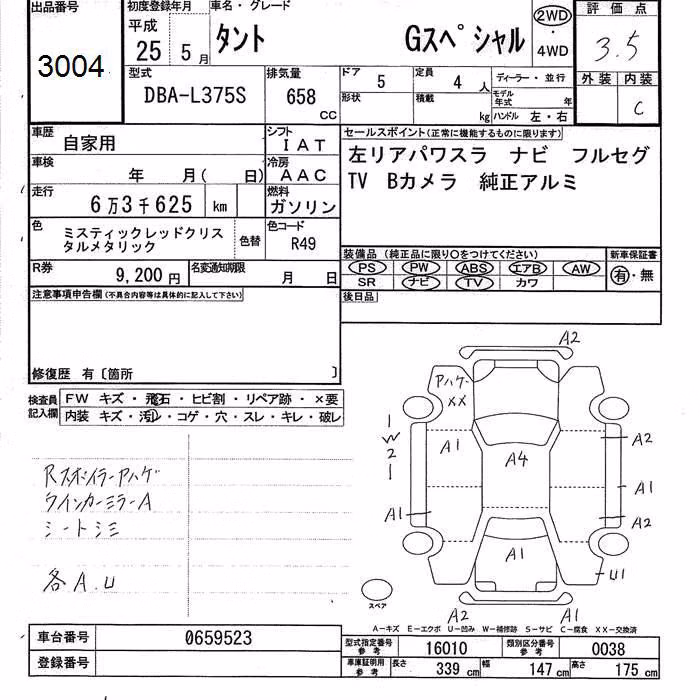 出品番号
3004
初度登録年月
平成
25 5 月
車名・グレード
タント Gスペシャル
2WD
・
4WD
評価点
3.5
外装 内装
C
型式
DBA-L375S
排気量
658
CC
ドア 5
定員 4 人
形状
積載 kg
ディーラー・並行
モデル年式 年
ハンドル 左・右
車歴
自家用
シフト
IAT
車検
年 月( 日)
冷房
AAC
走行
6万3千625 km
燃料
ガソリン
色
ミスティックレッドクリス
タルメタリック
色替
色コード
R49
R券
9,200 円
名変通知期限
月 日
セールスポイント(正常に機能するものに限ります)
左リアパワスラ ナビ フルセグ
TV Bカメラ 純正アルミ
装備品(純正品に限り〇をつけてください)
PS PW ABS エアB AW
SR ナビ TV カワ
新車保証書
有・無
後日品
注意事項申告欄(不具合内容等は具体的に記入して下さい)
修復歴 有〔箇所 〕
検査員
記入欄
FW キズ・飛石・ヒビ割・リペア跡・×要
内装 キズ・汚レ・コゲ・穴・スレ・キレ・破レ
Rスポイラーアハゲ
ウインカーミラーA
シートシミ
各A.U
A2
アハゲ
XX
1
W
2
1
A1
A4
A2
A1
A1
A2
A1
U1
スペア
A2
A1
A−キズ E−エクボ U−凹み W−補修跡 S−サビ C−腐食 XX−交換済
車台番号 0659523
登録番号
型式指定番号
参考
16010
類別区分番号
参考
0038
車庫証明用
参考
長さ 339 cm 幅 147 cm 高さ 175 cm